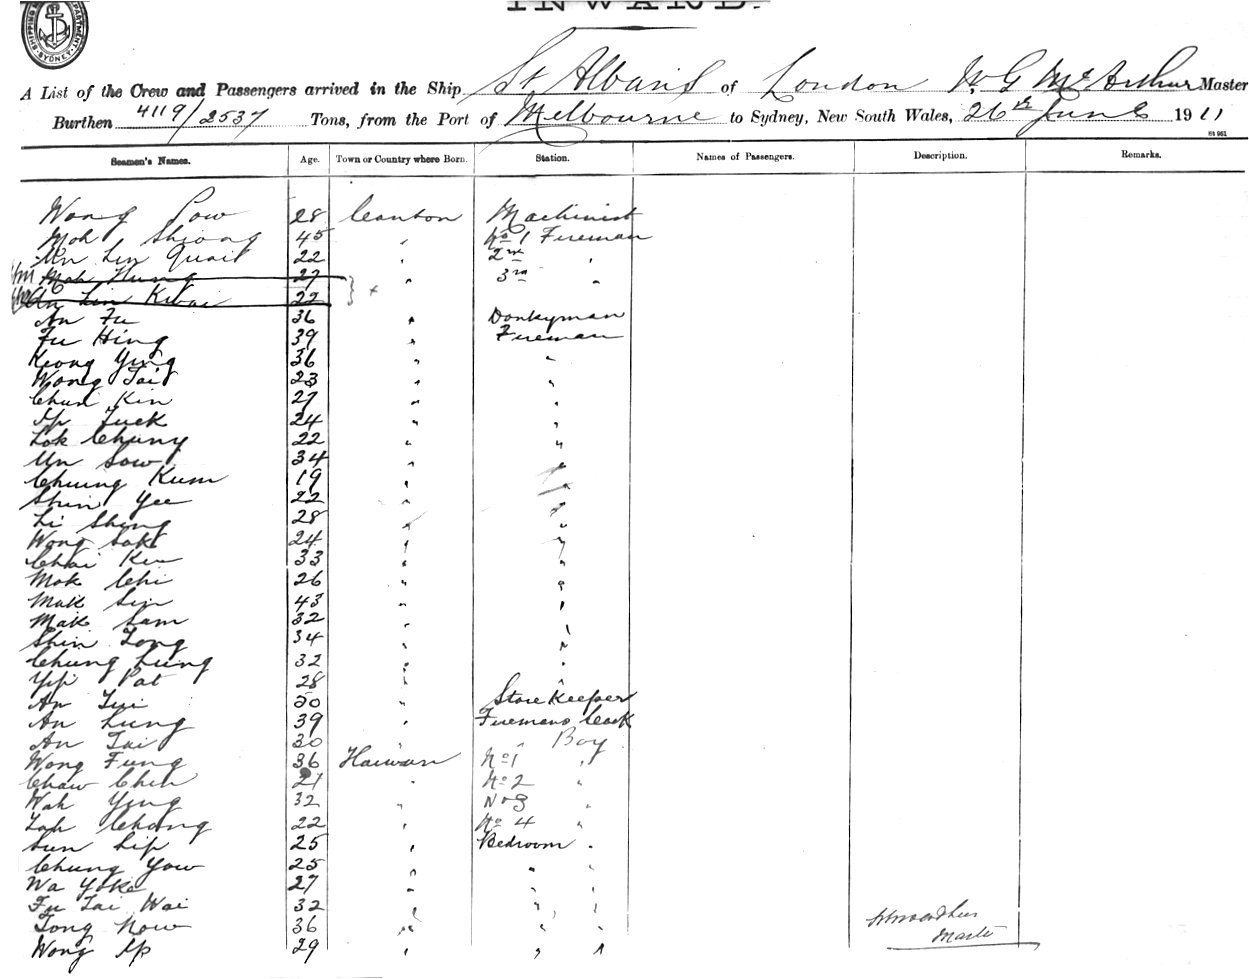 INWARD.
SHIPPING DEPARTMENT. SYDNEY.
A List of the Crew and Passengers arrived in the Ship St Albans of London W. G. McArthur Master
Burthen 4119/2537 Tons, from the Port of Melbourne to Sydney, New South Wales, 26th June 1911
St 961
Seamen's Names. Age. Town or Country where Born. Station. Names of Passengers. Description. Remarks.
Wong Pow 28 Canton Machinist
Moh Shiong 45 " No 1 Fireman
Un Lin Quai 22 " 2nd "
Mah Hung 27 " 3rd "
Un Lin Kwai 22
An Fu 36 " Donkyman
Fu Hing 39 " Fireman
Keong Ying 36 " "
Wong Tai 23 " "
Chun Kin 27 " "
Ip Tuck 24 " "
Lok Chung 22 " "
Un Sow 34 " "
Chung Kum 19 " "
Shin Yee 22 " "
Li Shing 28 " "
Wong Sak 24 " "
Chai Kew 33 " "
Mok Chi 26 " "
Mak Sin 43 " "
Mak Sam 32 " "
Shin Tong 34 " "
Chung Lung 32 " "
Yip Pat 28 " "
An Tui 50 " Store Keeper
An Lung 39 " Firemans Cook
An Tai 30 " " Boy
Wong Fung 36 Haiwan No 1 "
Chaw Chin 21 " No 2 "
Wah Ying 32 " No 3 "
Lah Chong 22 " No 4 "
Sun Lip 25 " Bedroom "
Chung Yow 25 " " "
Wa Yoke 27 " " "
Fu Tai Wai 32 " " "
Tong Now 36 " " "
Wong Ip 29 " " "
WGMcArthur
Master